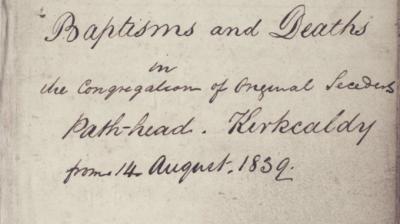 Baptisms and Deaths
in
the Congregation of Original Seceders
Path-head. Kirkcaldy
from 14 August. 1839.